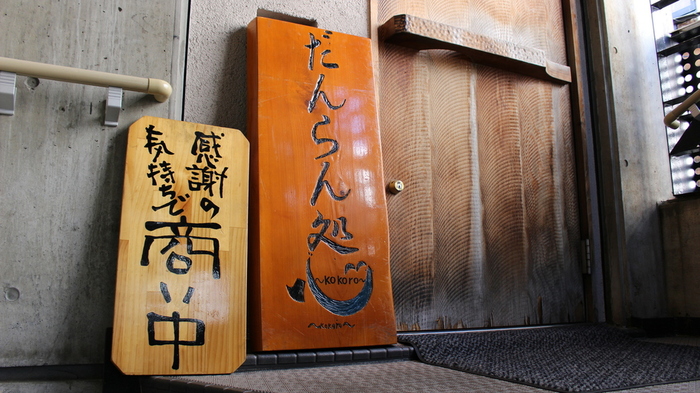 感謝の
気持ちで
商い中
だんらん処
~kokoro~